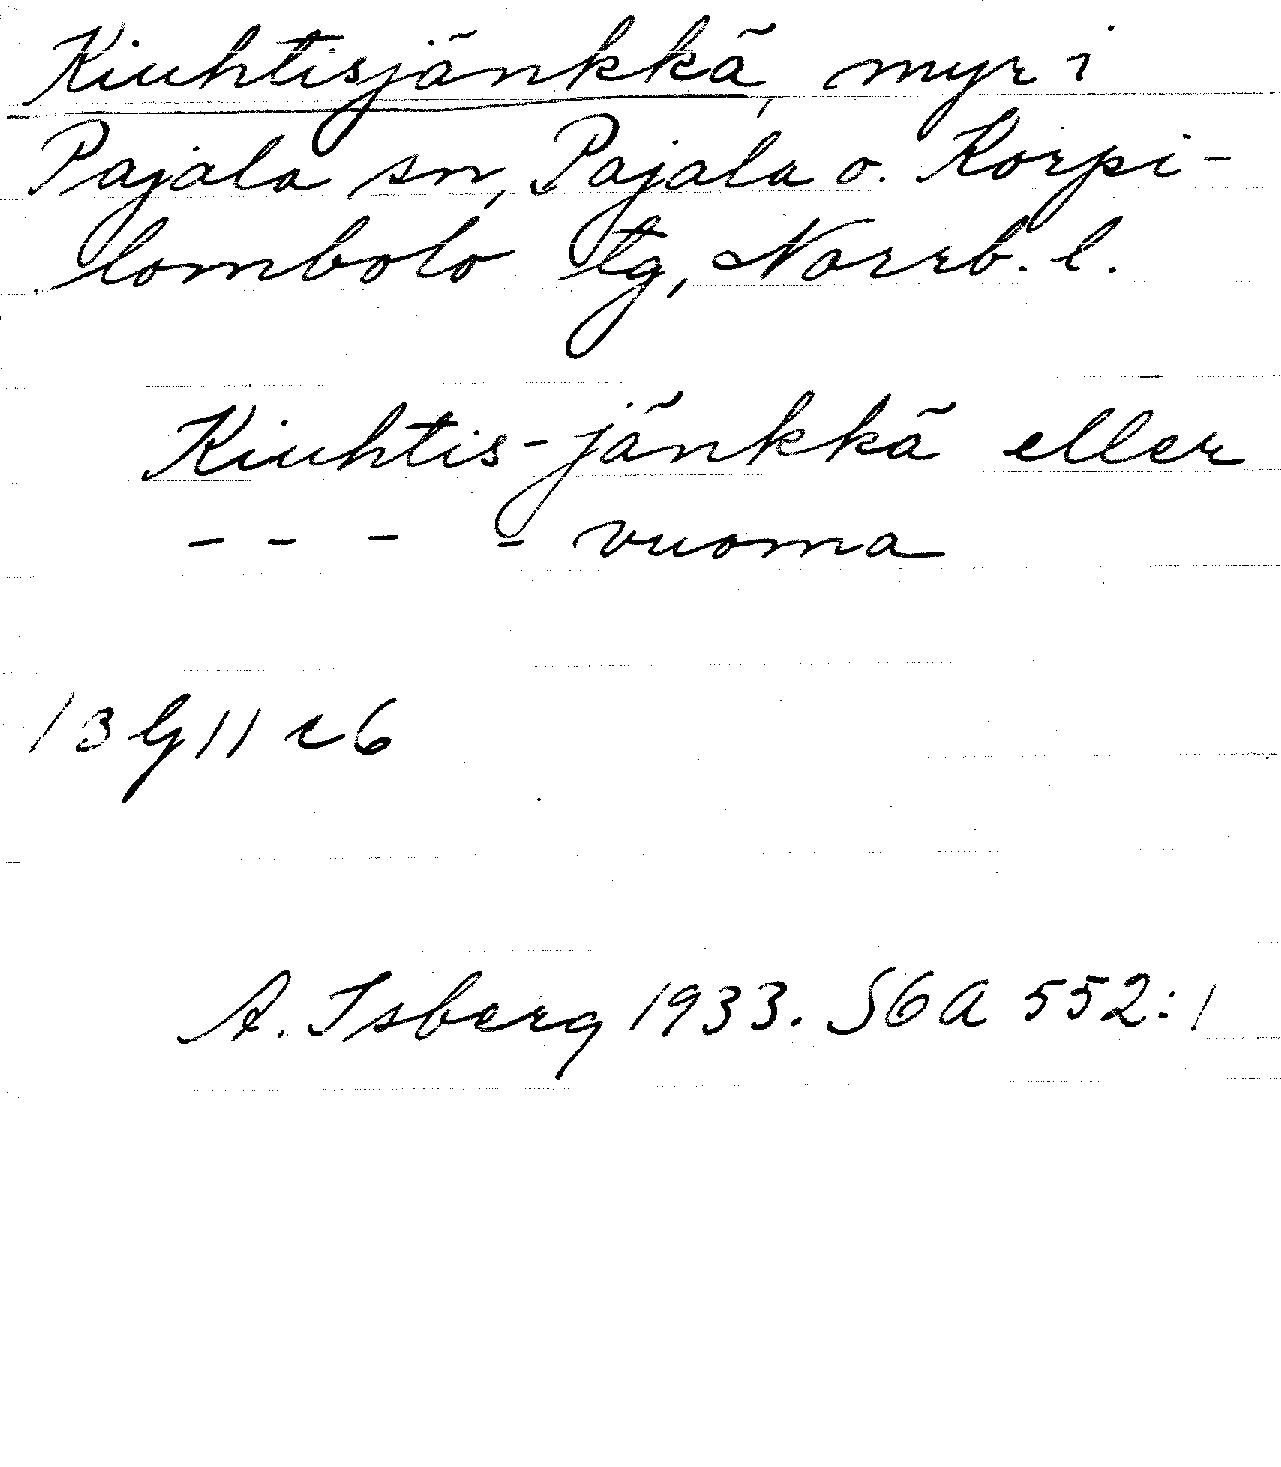 Kiuhtisjänkkä, myr i
Pajala sn, Pajala o. Korpi-
lombolo tg, Norrb. l.
Kiuhtis-jänkkä eller
- - - - vuoma
/3 G 11 c 6
A. Isberg 1933. SGA 552:1